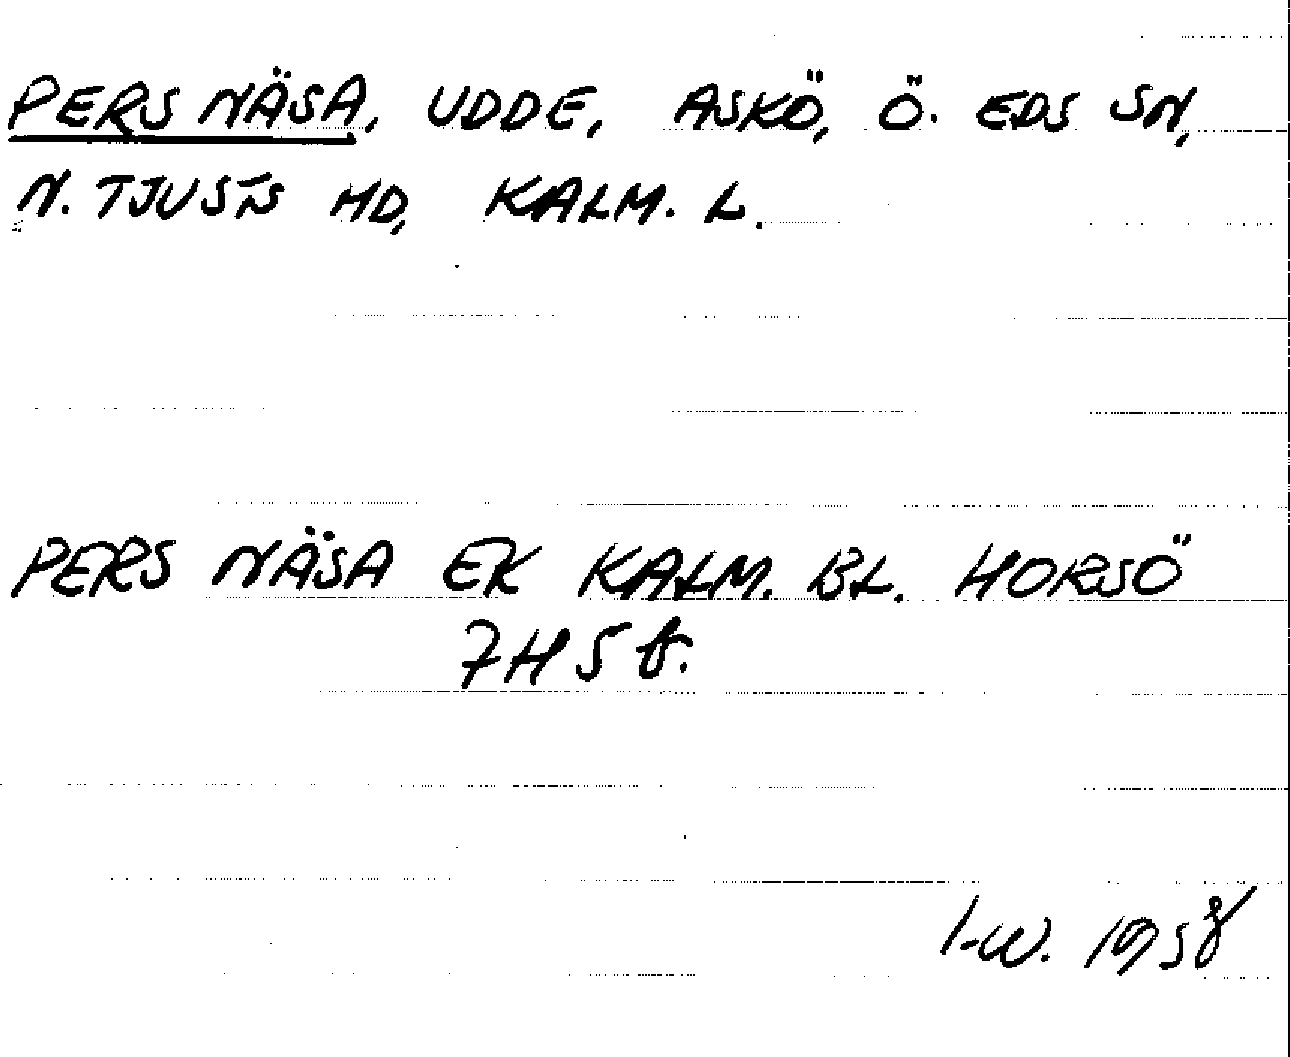 PERS NÄSA, UDDE, ASKÖ, Ö. EDS SN,
N. TJUSTS HD, KALM. L.
PERS NÄSA EK KALM. BL. HORSÖ
7H5f.
I-W. 1958